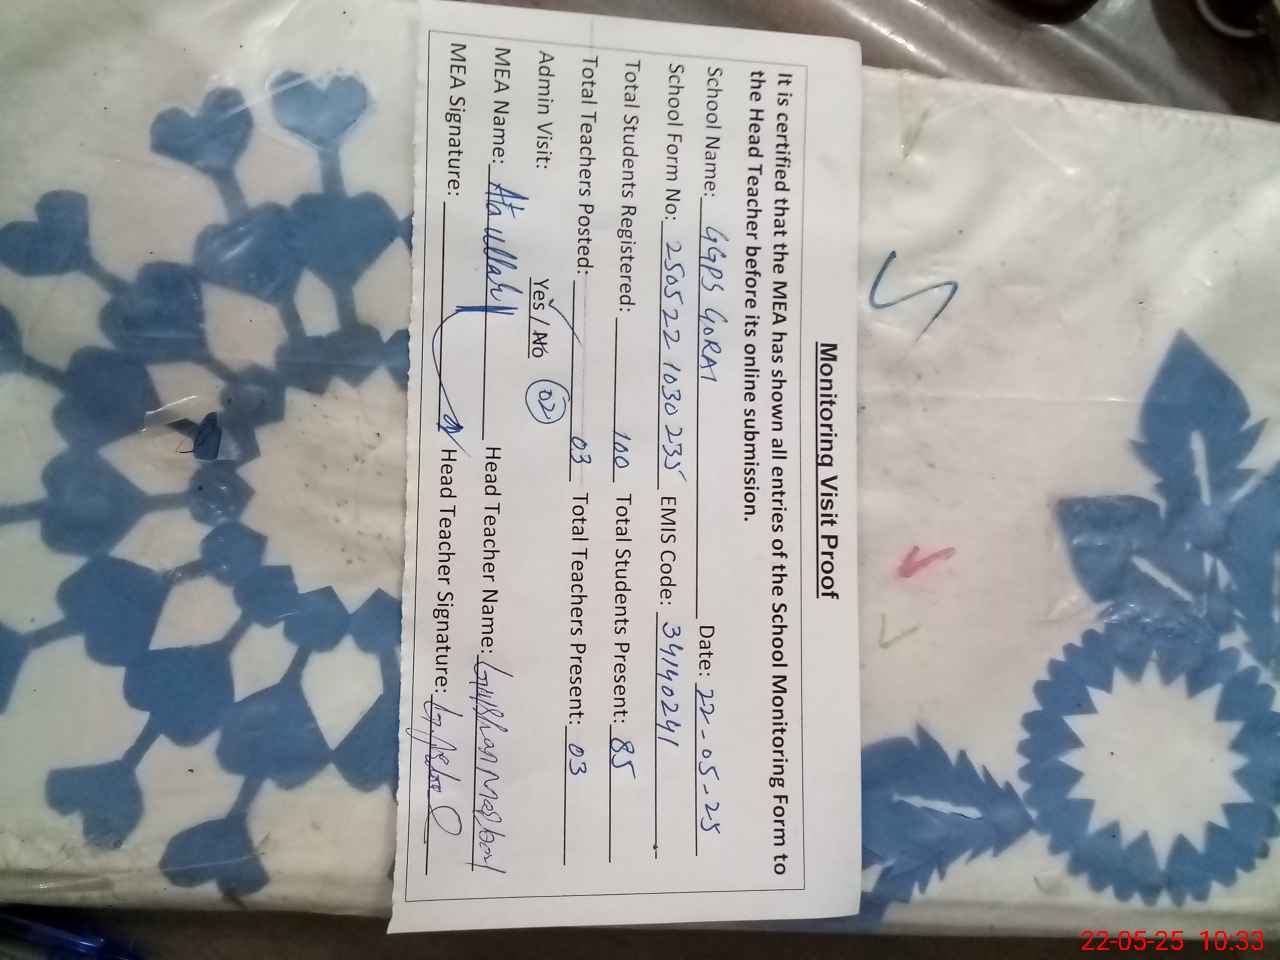 Monitoring Visit Proof
It is certified that the MEA has shown all entries of the School Monitoring Form to
the Head Teacher before its online submission.
School Name: GGPS GORAI Date: 22-05-25
School Form No: 250522 1030 235 EMIS Code: 34140241
Total Students Registered: 100 Total Students Present: 85
Total Teachers Posted: 03 Total Teachers Present: 03
Admin Visit: Yes / No 02
MEA Name: Ataullah Head Teacher Name:
MEA Signature: Head Teacher Signature:
22-05-25 10:33